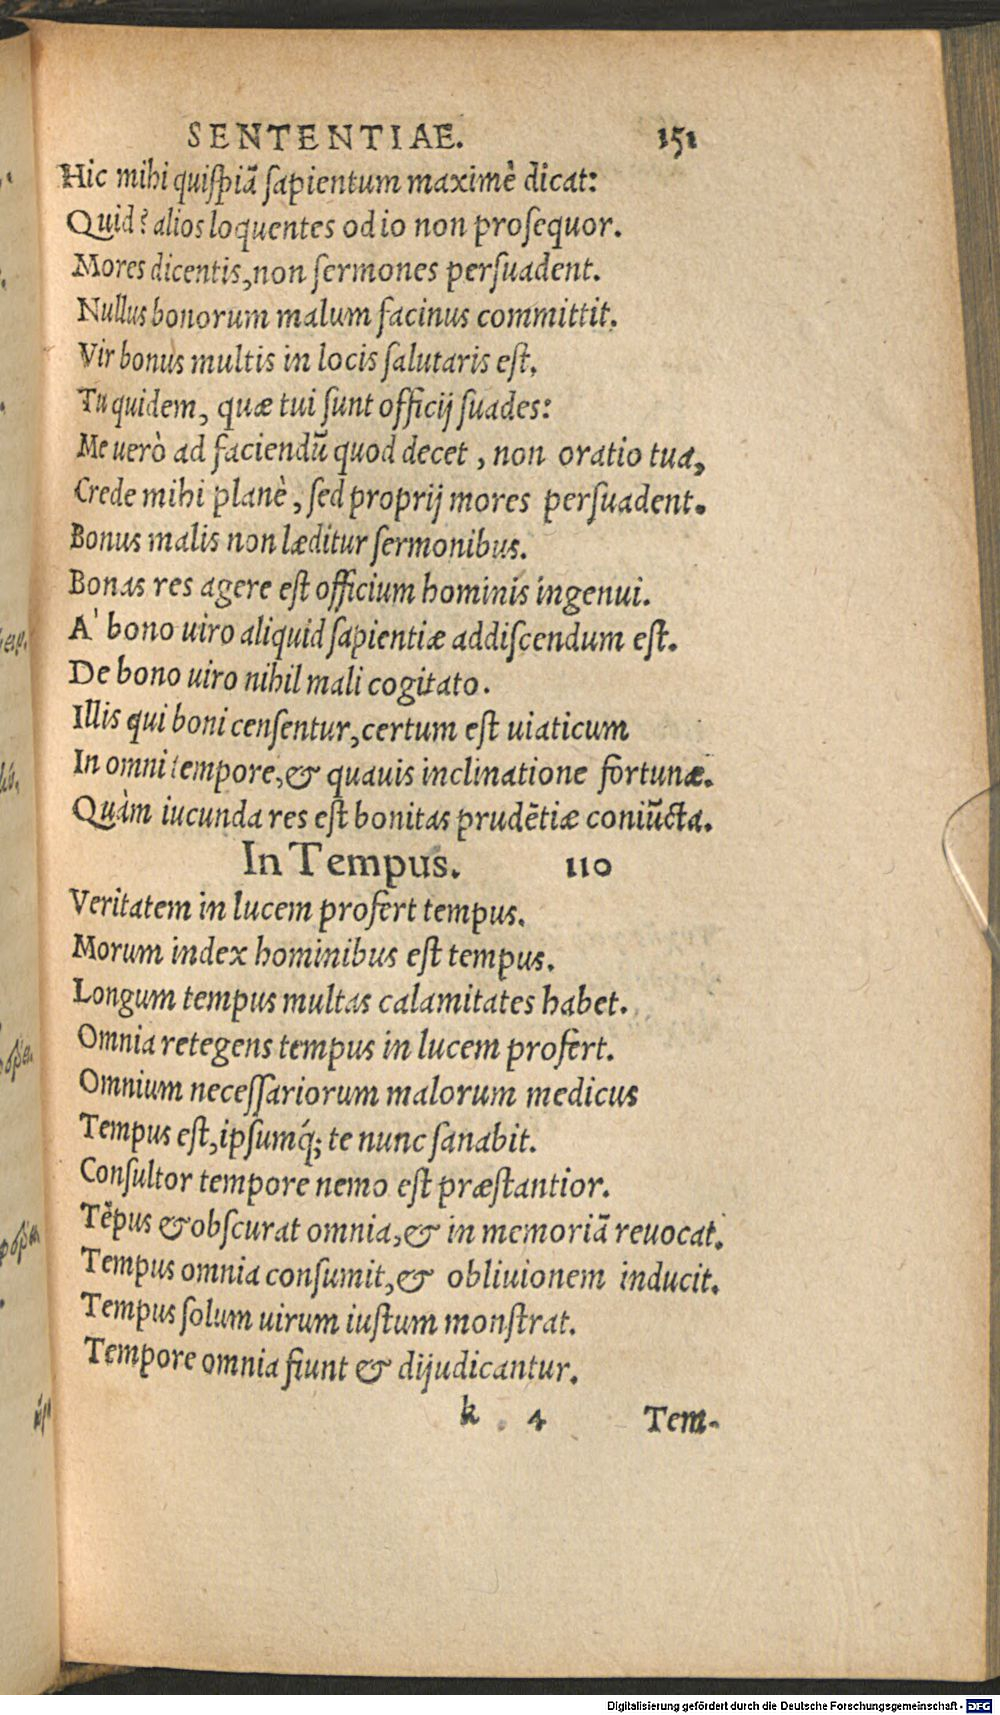 SENTENTIAE. 151
Hic mihi quiſpiã ſapientum maximè dicat:
Quid? alios loquentes odio non proſequor.
Mores dicentis, non ſermones perſuadent.
Nullus bonorum malum facinus committit.
Vir bonus multis in locis ſalutaris eſt.
Tu quidem, quæ tui ſunt officij ſuades:
Me uerò ad faciendũ quod decet, non oratio tua,
Crede mihi planè, ſed proprij mores perſuadent.
Bonus malis non læditur ſermonibus.
Bonas res agere eſt officium hominis ingenui.
A' bono uiro aliquid ſapientiæ addiſcendum eſt.
De bono uiro nihil mali cogitato.
Illis qui boni cenſentur, certum eſt uiaticum
In omni tempore, & quauis inclinatione fortunæ.
Quàm iucunda res eſt bonitas prudẽtiæ coniũcta.
In Tempus. 110
Veritatem in lucem profert tempus.
Morum index hominibus eſt tempus.
Longum tempus multas calamitates habet.
Omnia retegens tempus in lucem profert.
Omnium neceſſariorum malorum medicus
Tempus eſt, ipſumq́; te nunc ſanabit.
Conſultor tempore nemo eſt præſtantior.
Tẽpus & obſcurat omnia, & in memoriã reuocat.
Tempus omnia conſumit, & obliuionem inducit.
Tempus ſolum uirum iuſtum monſtrat.
Tempore omnia fiunt & dijudicantur.
k 4 Tem-
Digitalisierung gefördert durch die Deutsche Forschungsgemeinschaft - DFG